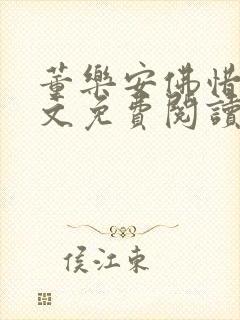 董樂安佛惜
文免費閱讀
侯江東